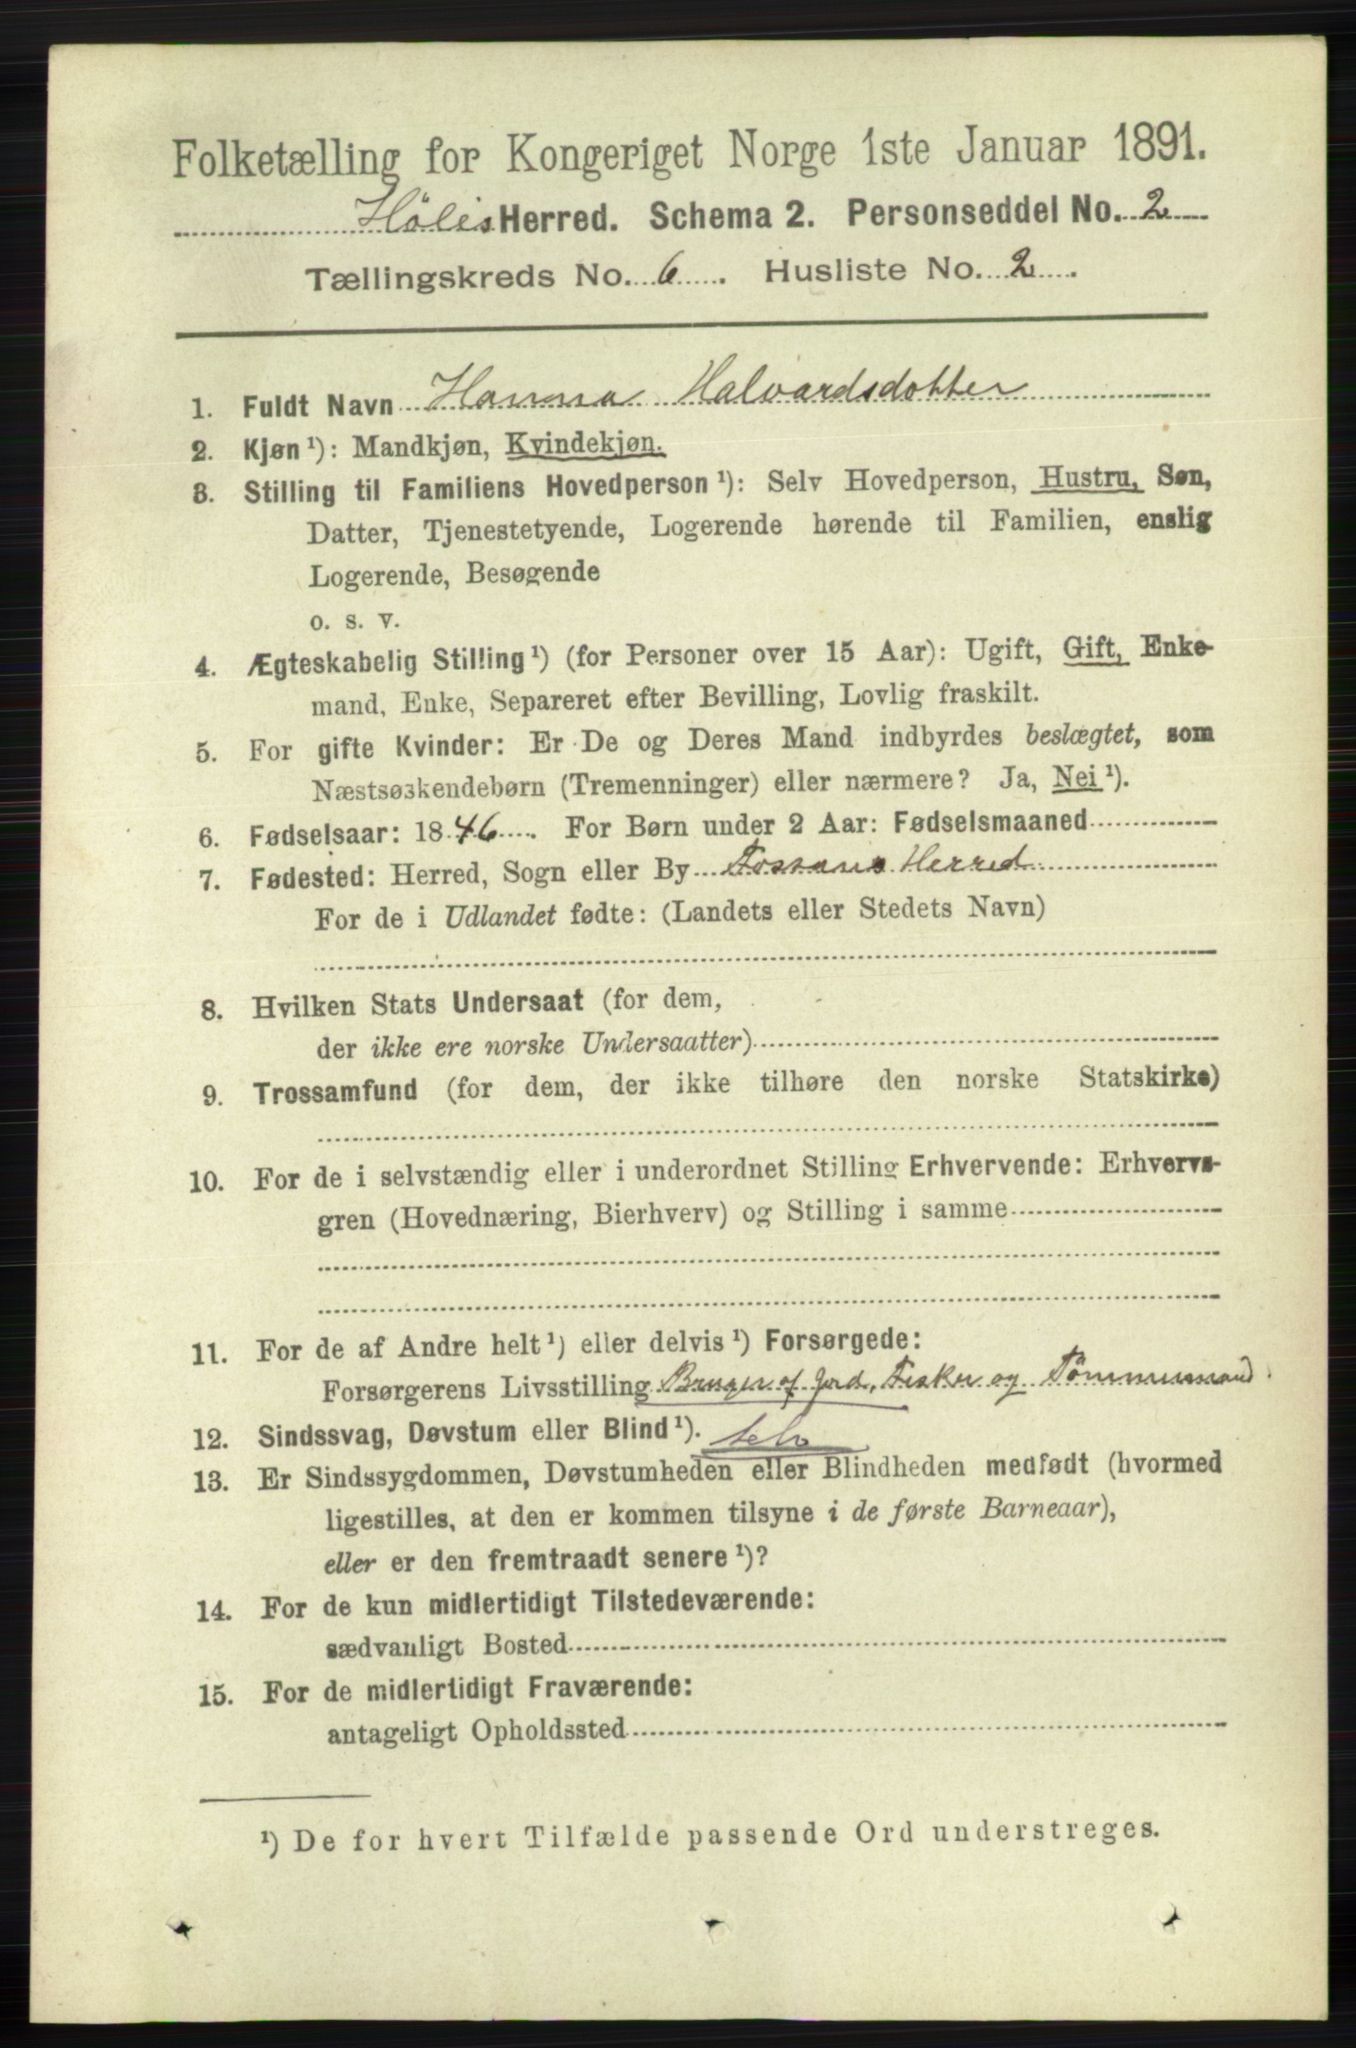 Folketælling for Kongeriget Norge 1ste Januar 1891.
Høles Herred. Schema 2. Personseddel No. 2
Tællingskreds No. 6. Husliste No. 2.
1. Fuldt Navn Hanna Halvardsdotter
2. Kjøn ¹): Mandkjøn, Kvindekjøn.
3. Stilling til Familiens Hovedperson ¹): Selv Hovedperson, Hustru, Søn,
Datter, Tjenestetyende, Logerende hørende til Familien, enslig
Logerende, Besøgende
o. s. v.
4. Ægteskabelig Stilling ¹) (for Personer over 15 Aar): Ugift, Gift, Enke-
mand, Enke, Separeret efter Bevilling, Lovlig fraskilt.
5. For gifte Kvinder: Er De og Deres Mand indbyrdes beslægtet, som
Næstsøskendebørn (Tremenninger) eller nærmere? Ja, Nei ¹).
6. Fødselsaar: 1846. For Børn under 2 Aar: Fødselsmaaned
7. Fødested: Herred, Sogn eller By Fossans Herred
For de i Udlandet fødte: (Landets eller Stedets Navn)
8. Hvilken Stats Undersaat (for dem,
der ikke ere norske Undersaatter)
9. Trossamfund (for dem, der ikke tilhøre den norske Statskirke)
10. For de i selvstændig eller i underordnet Stilling Erhvervende: Erhvervs-
gren (Hovednæring, Bierhverv) og Stilling i samme
11. For de af Andre helt ¹) eller delvis ¹) Forsørgede:
Forsørgerens Livsstilling Bruger af Jord, Fisker og Tømmermand
12. Sindssvag, Døvstum eller Blind ¹). selv
13. Er Sindssygdommen, Døvstumheden eller Blindheden medfødt (hvormed
ligestilles, at den er kommen tilsyne i de første Barneaar),
eller er den fremtraadt senere ¹)?
14. For de kun midlertidigt Tilstedeværende:
sædvanligt Bosted
15. For de midlertidigt Fraværende:
antageligt Opholdssted
¹) De for hvert Tilfælde passende Ord understreges.